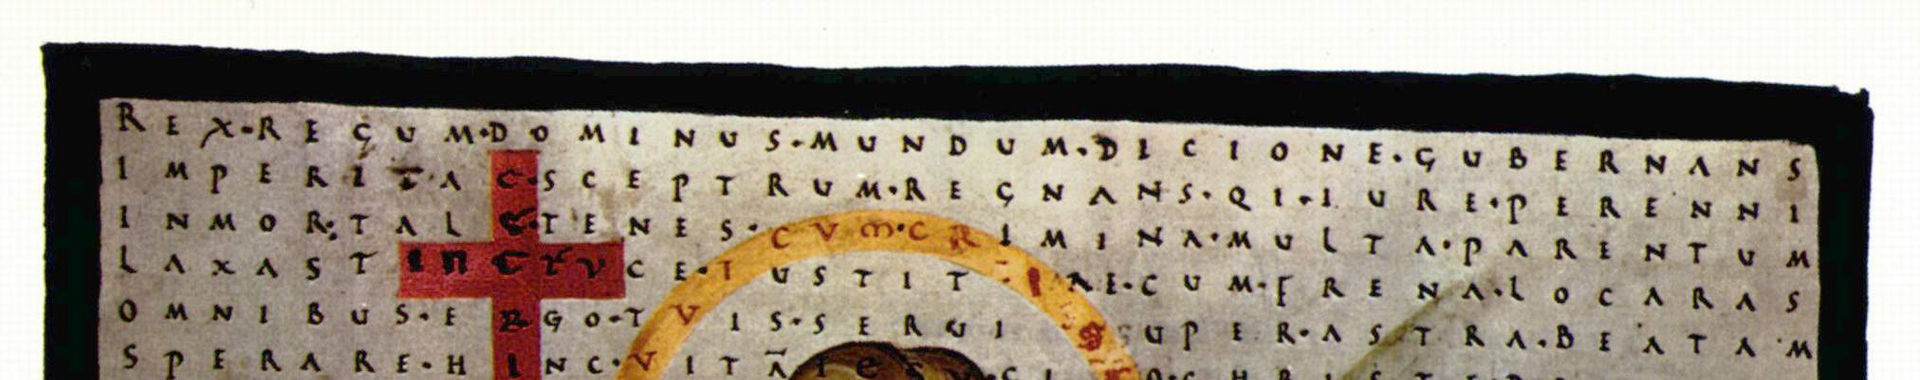 REX·REGUM·DOMINUS·MUNDUM·DICIONE·GUBERNANS
IMPERITAC·SCEPTRUM·REGNANS·QI·IURE·PERENNI
INMORTALE·TENES·CVM·CRIMINA·MULTA·PARENTUM
LAXAST IN CRVCE·IUSTITIAE·CUM·FRENA·LOCARAS
OMNIBUS·ERGO·TVIS·SERUIS SUPER·ASTRA·BEATAM
SPERARE·HINC·VITĀ